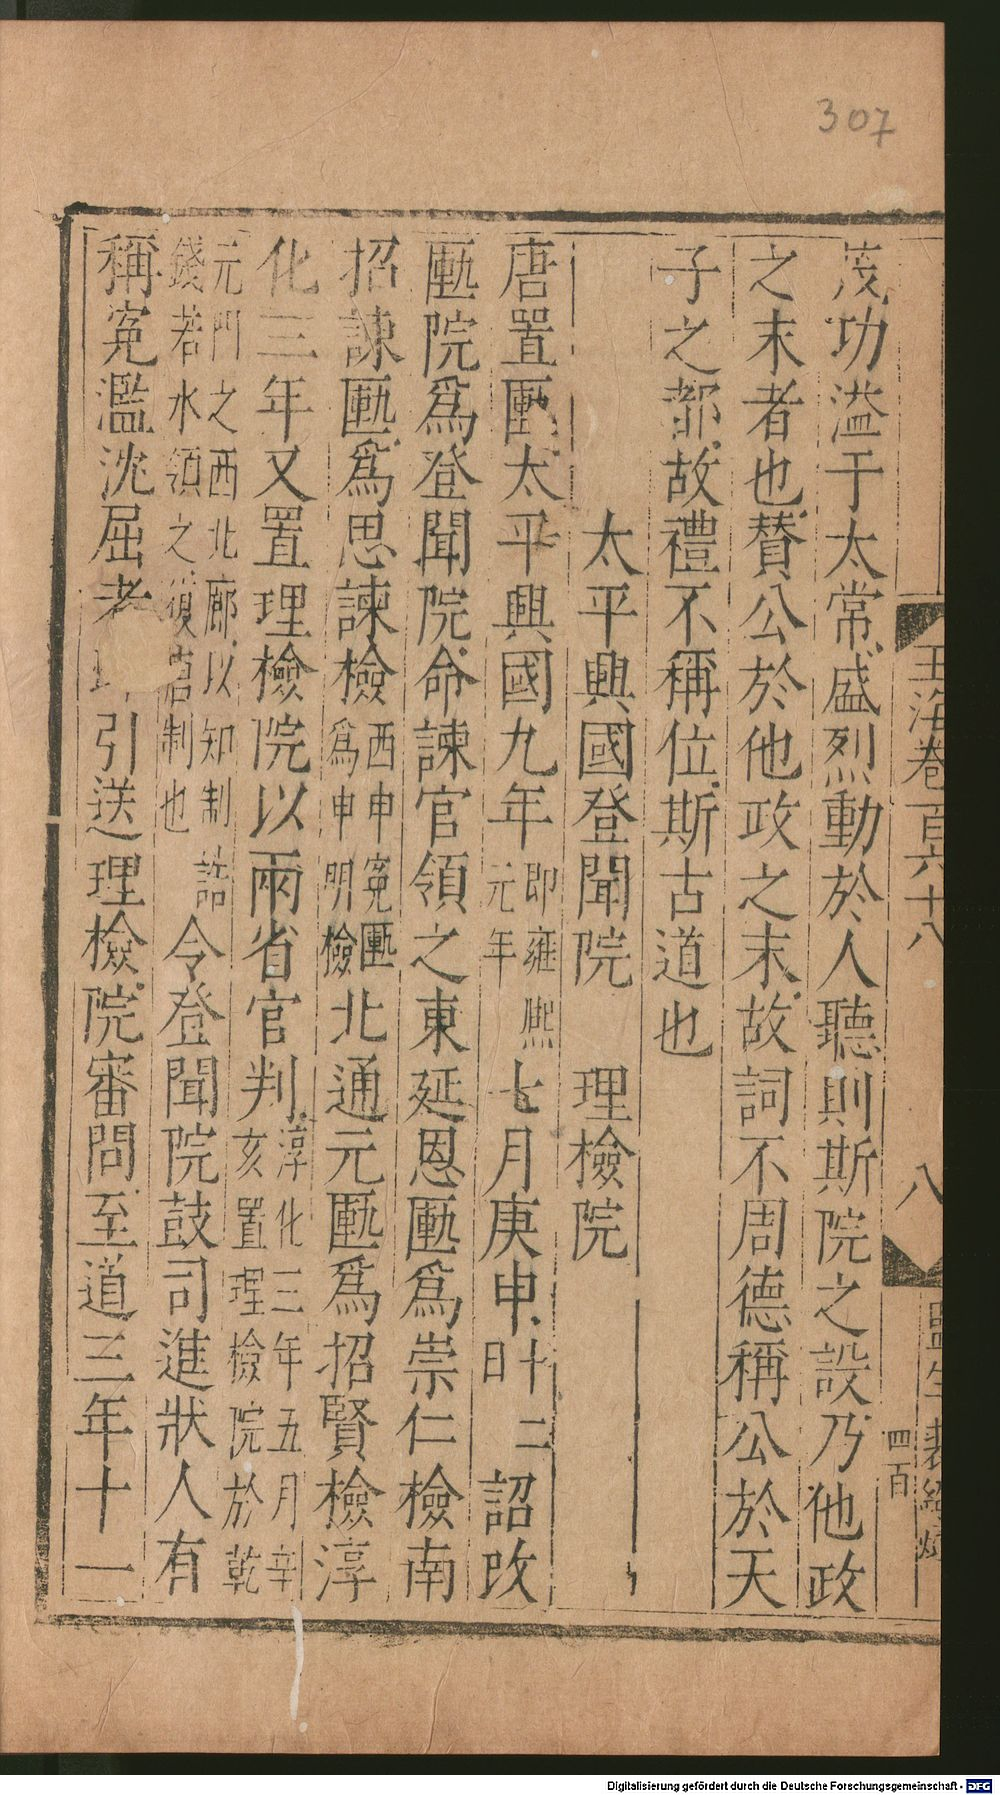 307
玉海卷一百六十八
八
監生裴
四百
茂功溢于太常盛烈動於人聽則斯院之設乃他政
之末者也贊公於他政之末故詞不周德稱公於天
子之都故禮不稱位斯古道也
太平興國登聞院 理檢院
唐置匭太平興國九年即雍熙元年七月庚申十二日詔改
匭院爲登聞院命諫官領之東延恩匭爲崇仁檢南
招諫匭爲思諫檢西申寃匭爲申明檢北通元匭爲招賢檢淳
化三年又置理檢院以兩省官判淳化三年五月辛亥置理檢院於乾
元門之西北廊以知制誥錢若水領之復唐制也令登聞院鼓司進狀人有
稱寃濫沈屈者 引送理檢院審問至道三年十一
Digitalisierung gefördert durch die Deutsche Forschungsgemeinschaft - DFG